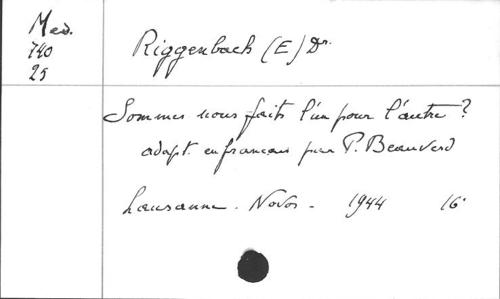 Med.
740
25
Riggenbach (E) Dr.
Sommes nous faits l'un pour l'autre?
adapt. en francais par P. Beauverd
Lausanne. Novos - 1944 16°